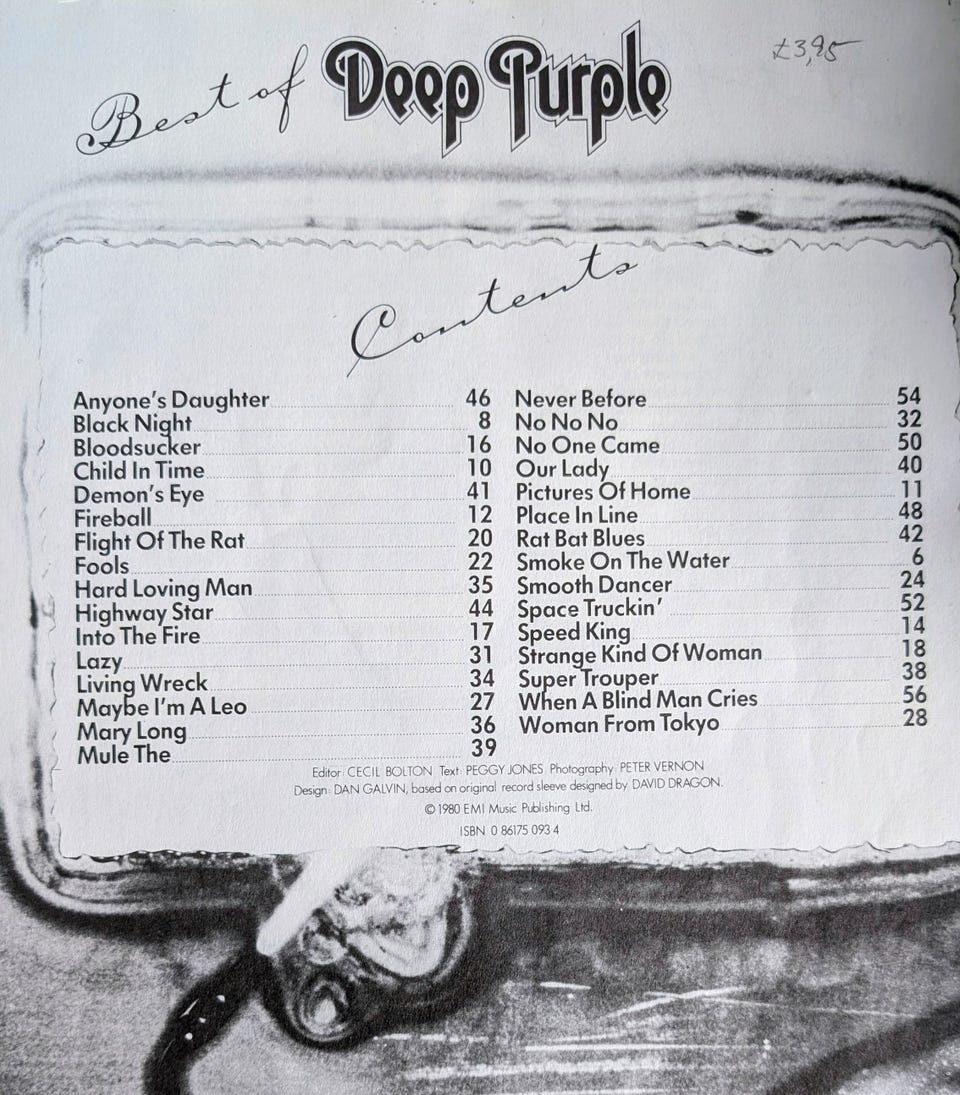 £3,95
Best of Deep Purple
Contents
Anyone's Daughter 46
Black Night 8
Bloodsucker 16
Child In Time 10
Demon's Eye 41
Fireball 12
Flight Of The Rat 20
Fools 22
Hard Loving Man 35
Highway Star 44
Into The Fire 17
Lazy 31
Living Wreck 34
Maybe I'm A Leo 27
Mary Long 36
Mule The 39
Never Before 54
No No No 32
No One Came 50
Our Lady 40
Pictures Of Home 11
Place In Line 48
Rat Bat Blues 42
Smoke On The Water 6
Smooth Dancer 24
Space Truckin' 52
Speed King 14
Strange Kind Of Woman 18
Super Trouper 38
When A Blind Man Cries 56
Woman From Tokyo 28
Editor: CECIL BOLTON Text: PEGGY JONES Photography: PETER VERNON
Design: DAN GALVIN, based on original record sleeve designed by DAVID DRAGON.
© 1980 EMI Music Publishing Ltd.
ISBN 0 86175 093 4